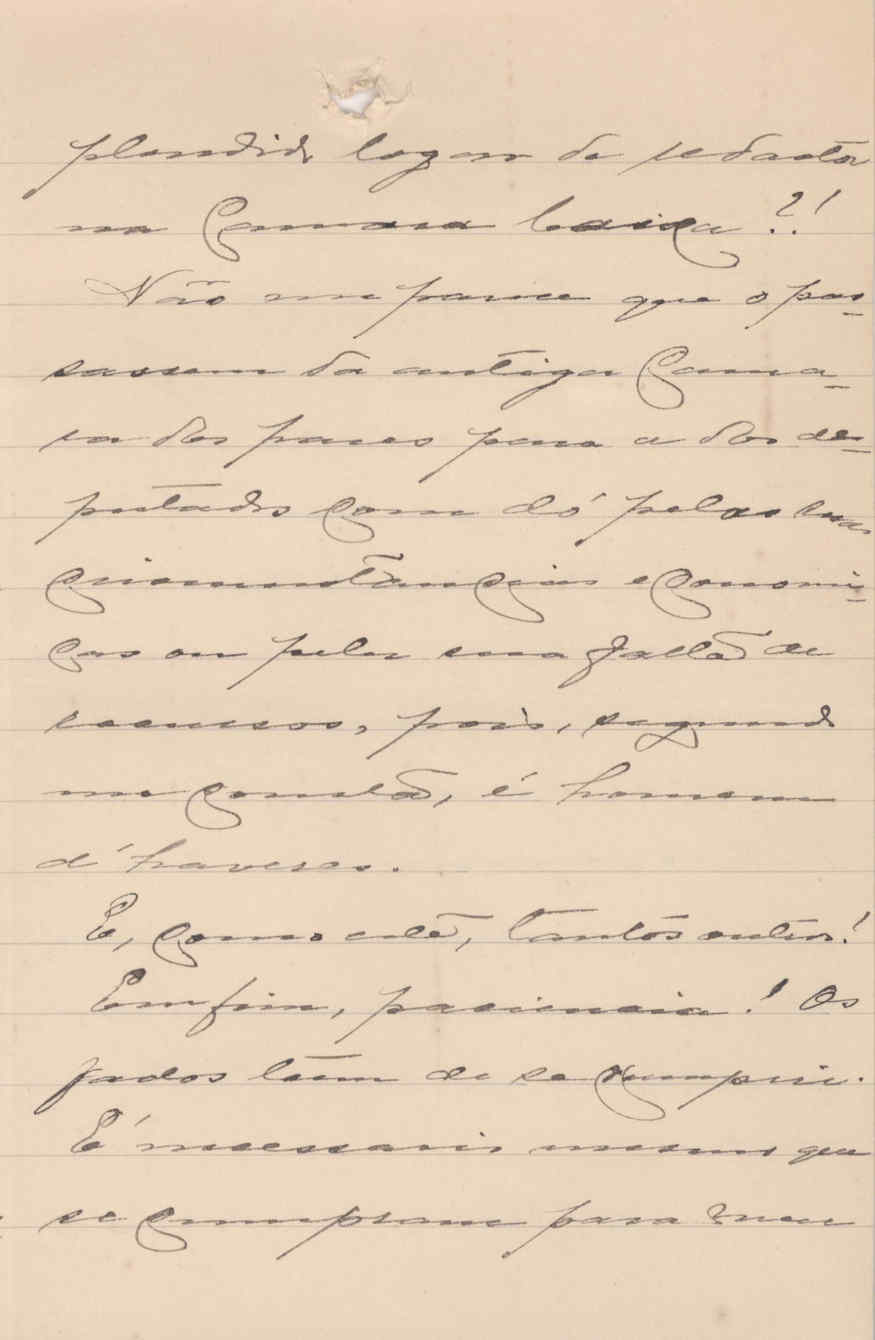 plendido logar de redactor
na Camara baixa?!
Não me parece que o pas-
sassem da antiga Cama-
ra dos pares para a dos de-
putados com dó pelas suas
circumstancias economi-
cas ou pela sua falta de
recursos, pois, segundo
me consta, é homem
d'haveres.
E, como este, tantos outros!
Emfim, paciencia! Os
fados teem de se cumprir.
É necessario mesmo que
se cumpram para meu